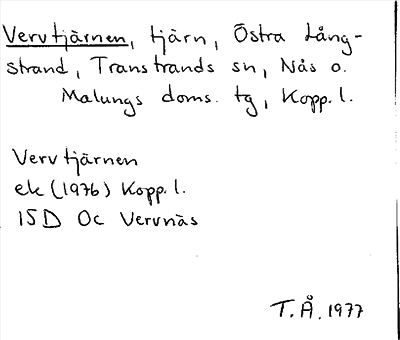 Vervtjärnen, tjärn, Östra Lång-
strand, Transtrands sn, Nås o.
Malungs doms. tg, Kopp. l.
Vervtjärnen
ek (1976) Kopp. l.
15D Oc Vervnäs
T.Å. 1977